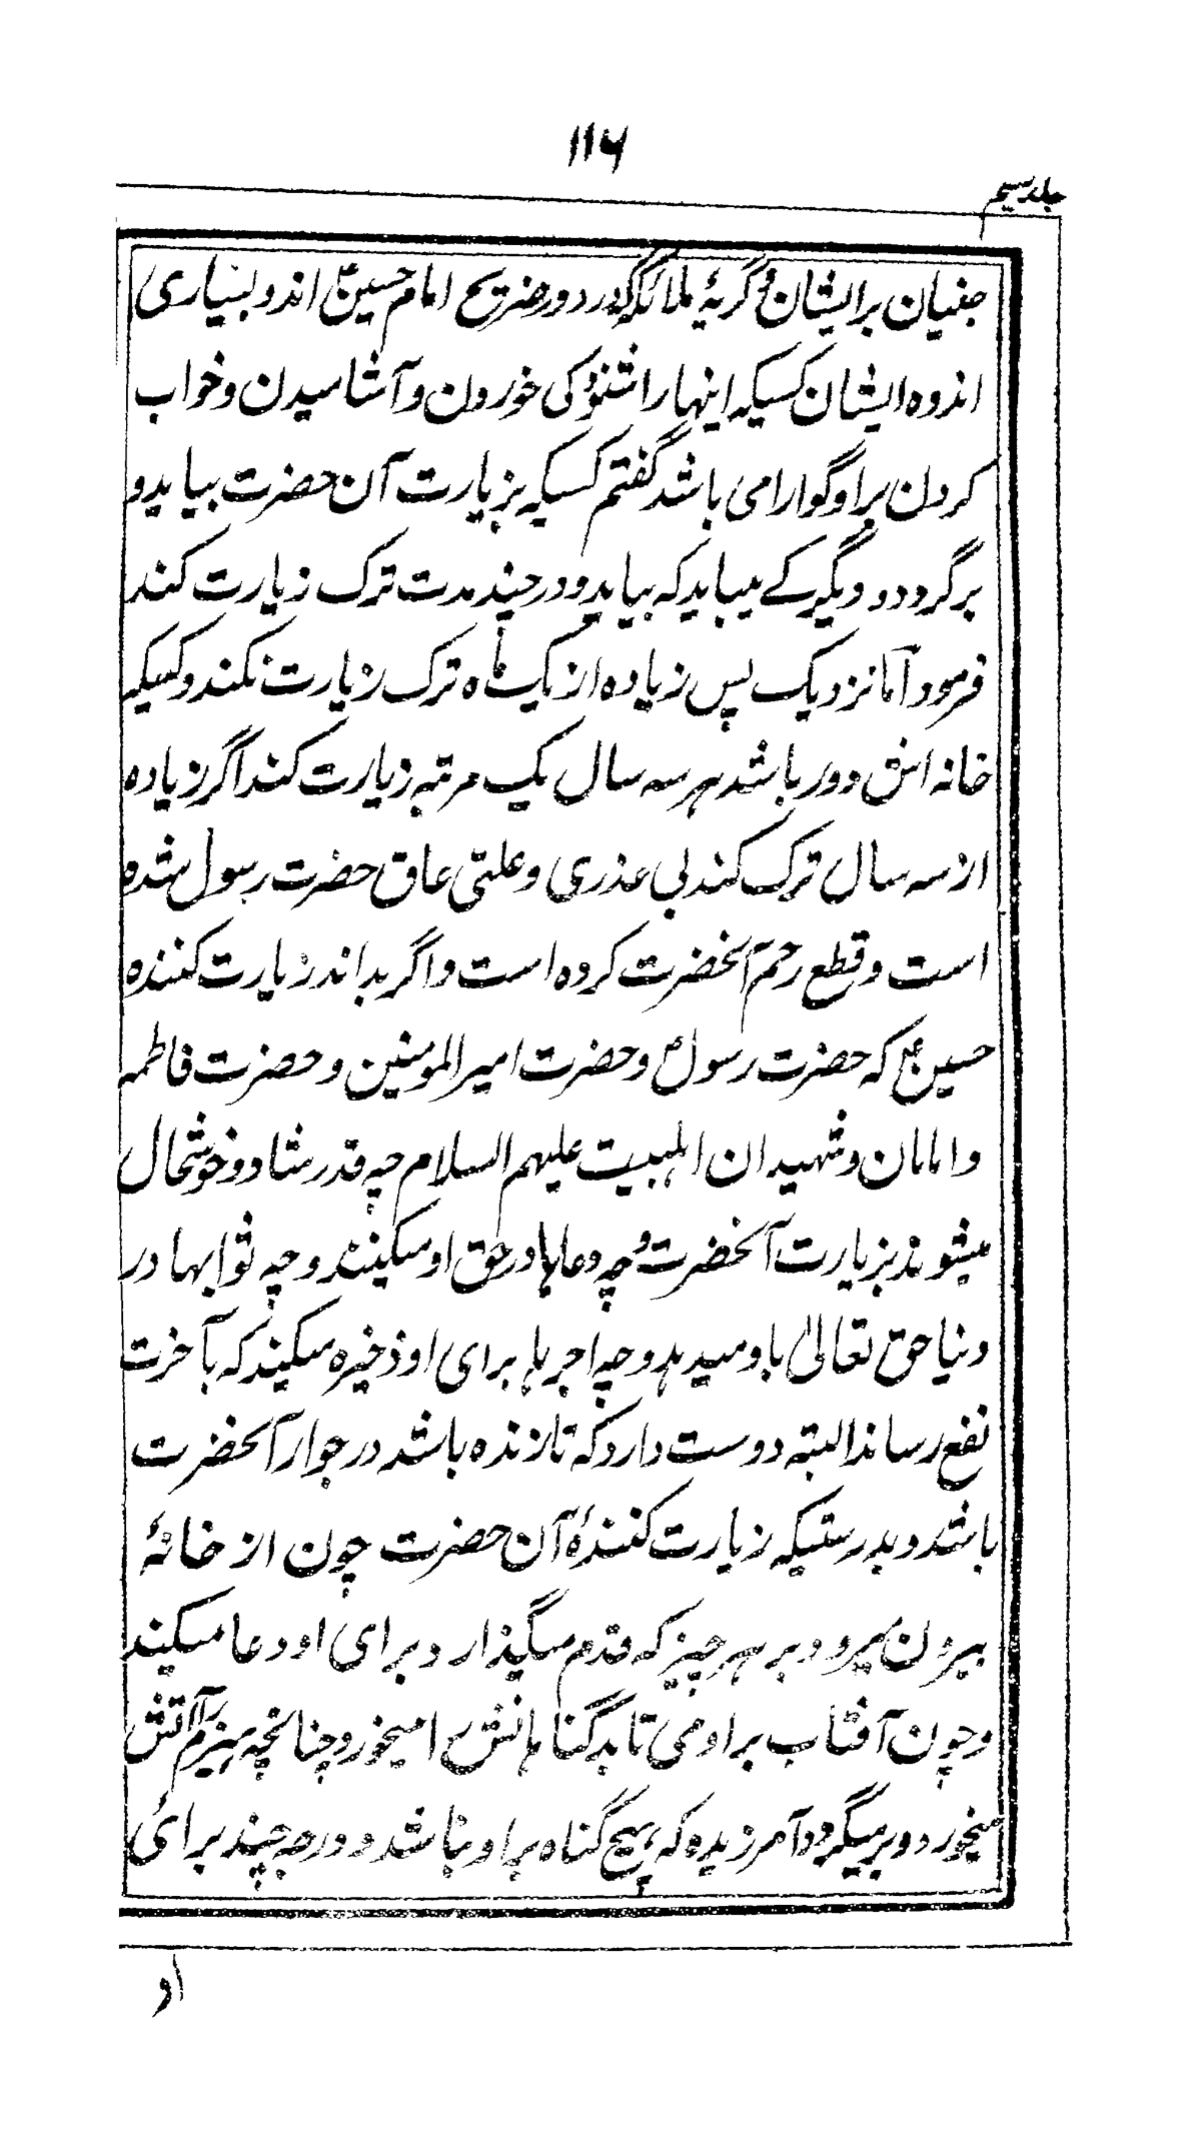 ۱۱۶
جلد سیم
جنیان بر ایشان و گریهٔ ملائکه که در دور ضریح امام حسین ع اند و بسیاری
اندوه ایشان کسیکه اینها را شنود کی خوردن و آشامیدن و خواب
کردن بر او گوارا می باشد گفتم کسیکه بزیارت آن حضرت بیاید و
برگردد و دیگر کے میباید که بیاید و در چند مدت ترک زیارت کند
فرمود اما نزدیک پس زیاده از یک ماه ترک زیارت نکند و کسیکه
خانه اش دور باشد هر سه سال یک مرتبه زیارت کند اگر زیاده
از سه سال ترک کند بی عذری و علتی عاق حضرت رسول شده
است و قطع رحم آنحضرت کرده است و اگر بداند زیارت کننده
حسین ع که حضرت رسول ص و حضرت امیر المومنین و حضرت فاطمه
و امامان و شهیدان اهلبیت علیهم السلام چه قدر شاد و خوشحال
میشوند بزیارت آنحضرت و چه دعاها در حق او میکنند و چه ثوابها در
دنیا حق تعالیٰ باو میدهد و چه اجرها برای او ذخیره میکند که بآخرت
نفع رساند البته دوست دارد که تا زنده باشد در جوار آنحضرت
باشد و بدرستیکه زیارت کنندهٔ آن حضرت چون از خانهٔ
بیرون میرود بر هر چیز که قدم میگذارد برای او دعا میکند
و چون آفتاب بر او می تابد گناهانش را میخورد چنانچه هیزم را آتش
میخورد و بر میگردد آمرزیده که هیچ گناه بر او نباشد و درجه چند برائ
او